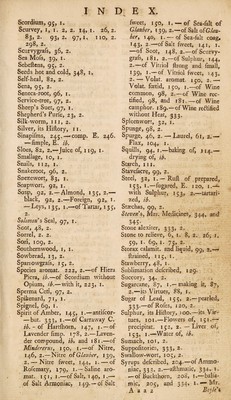 INDEX.
Scordium, 95, 1.
Scurvy, 1, 1. 2, 2. 14, 1. 26, 2.
83, 2. 93, 2. 97, 1. 110, 2.
298, 2.
Scurvygrass, 36, 2.
Sea Moss, 39, 1.
Sebestens, 95, 2.
Seeds hot and cold, 348, 1,
Self-heal, 82, 2.
Sena, 95, 2.
Senora-root, 96, 1.
Service-tree, 97, 2.
Sheep's Sorel, 97, 1.
Shepherd's Purse, 23, 2.
Silk-worm, 111, 2.
Silver, its History, 11.
Sinapisms, 245.—comp. E. 246.
—simple, E. ib.
Sloes, 82, 2.—Juice of, 119, 1.
Smallage, 10, 1.
Snails, 112, 1.
Snakeroot, 96, 2.
Snetwort, 83, 1.
Soapwort, 92, 1.
Soap, 92, 2.—Almond, 135, 2.—
black, 92, 2.—Foreign, 92, 1.
—Leys, 135, 1.—of Tartar, 135,
2.
Solomon's Seal, 97, 1.
Soot, 48, 2.
Sorrel, 2. 2.
Sorl, 109, 2.
Southernwood, 1, 1.
Sowbread, 13, 2.
Sparrowgrass, 15, 2.
Species aromat. 222, 2.—of Hiera
Picra, ib.—of Scordium without
Opium, ib.—with it, 223, 1.
Sperma Ceti, 97, 2.
Spikenard, 71, 1.
Spignel, 69, 1.
Spirit of Amber, 145, 1.—anticor-
but. 331, 1.—of Carraway C.
ib.—of Hartshorn, 147, 1.—of
Lavender simp. 178, 2.—Laven-
der compound, ib. and 18 Nitre,
Mindererus, 150, 1.—of Nitre,
146, 2.—Nitre of Glauber, 139,
2.—Nitre sweet, 144, 1.—of
Rosemary, 179, 1.—Saline aro-
mat. 151, 1.—of Salt, 140, 1.—
of Salt Armoniac, 149.—of Salt
sweet, 150, 1.—of Sea-salt of
Glauber, 139, 2.—of Salt of Glau-
ber, 140, 1.—of Sea-salt coag.
143, 2.—of Salt sweet, 141, 1.
—of Soot, 148, 2.—of Scurvy-
grass, 181, 2.—of Sulphur, 144,
2.—of Vitriol strong and small,
139, 1.—of Vitriol sweet, 143,
2.—Volat. aromat. 150, 2.—
Volat. fœtid, 150, 1.—of Wine
common, 98, 2.—of Wine rec-
tified, 98, and 181.—of Wine
camphor. 189.—of Wine rectified
without Heat, 333.
Spleenwort, 32, 1.
Spunge, 98, 2.
Spurge, 40, 2.—Laurel, 61, 2.—
Flax, 104, 1.
Squills, 94, 1.—baking of, 114.—
drying of, ib.
Starch, 111.
Starwheru, 99, 2.
Steel, 32, 1.—Rust of prepared,
153, 1.—sugared, E. 120, 1.—
with Sulphur, 153, 2.—tartari-
zed, ib.
Stœchas, 99, 2.
Steven's, Mrs. Medicines, 344, and
345.
Stone alcetive, 333, 2.
Stone to relieve, 6, 1. 8, 2. 26, 1.
59, 1. 69, 1. 73, 2.
Storax calamit. and liquid, 99, 2.—
strained, 115, 1.
Strawberry, 48, 1.
Sublimation described, 129.
Succory, 34, 2.
Sugarcane, 87, 1.—making it, 87,
2.—its Virtues, 88, 1.
Sugar of Lead, 155, 2.—pearled,
333.—of Roses, 120, 2.
Sulphur, its History, 100.—its Vir-
tues, 101.—Flowers of, 151.—
precipitat. 151, 2.—Liver of,
151, 1.—Water of, ib.
Sumach, 101, 2.
Suppositories, 333, 2.
Swallow-wort, 105, 2.
Syrups described, 204.—of Ammo-
niac, 333, 2.—asthmatic, 334, 1.
—of Buckthorn, 208, 1.—balsa-
mic, 205, and 334, 1.—Mr.
A a a 2 Boyle's